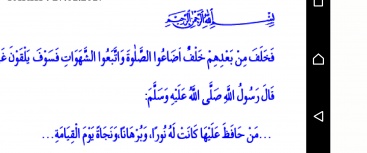 بِسْمِ اللهِ الرَّحْمٰنِ الرَّحِيمِ
فَخَلَفَ مِنْ بَعْدِهِمْ خَلْفٌ أَضَاعُوا الصَّلٰوةَ وَاتَّبَعُوا الشَّهَوَاتِ فَسَوْفَ يَلْقَوْنَ
قَالَ رَسُولُ اللهِ صَلَّى اللهُ عَلَيْهِ وَسَلَّمَ:
...مَنْ حَافَظَ عَلَيْهَا كَانَتْ لَهُ نُورًا، وَبُرْهَانًا،وَنَجَاةً يَوْمَ الْقِيَامَةِ...